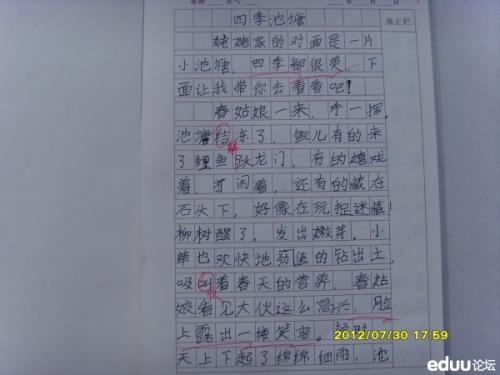 年 月 日
修正栏
四季池塘
姥姥家的对面是一片
小池塘，四季都很美，下
面让我带你去看看吧！
春姑娘一来，手一挥，
池塘结冻了，鱼儿有的来
了鲤鱼跃龙门，有的嬉戏
着，打闹着，还有的藏在
石头下，好像在玩捉迷藏！
柳树醒了，发出嫩芽。小
草也欢快地顽强的钻出土，
吸着春天的营养，春姑
娘看见大伙这么高兴，脸
上露出一缕笑容。
天上下起了绵绵细雨，池
2012/07/30 17:59
eduu论坛